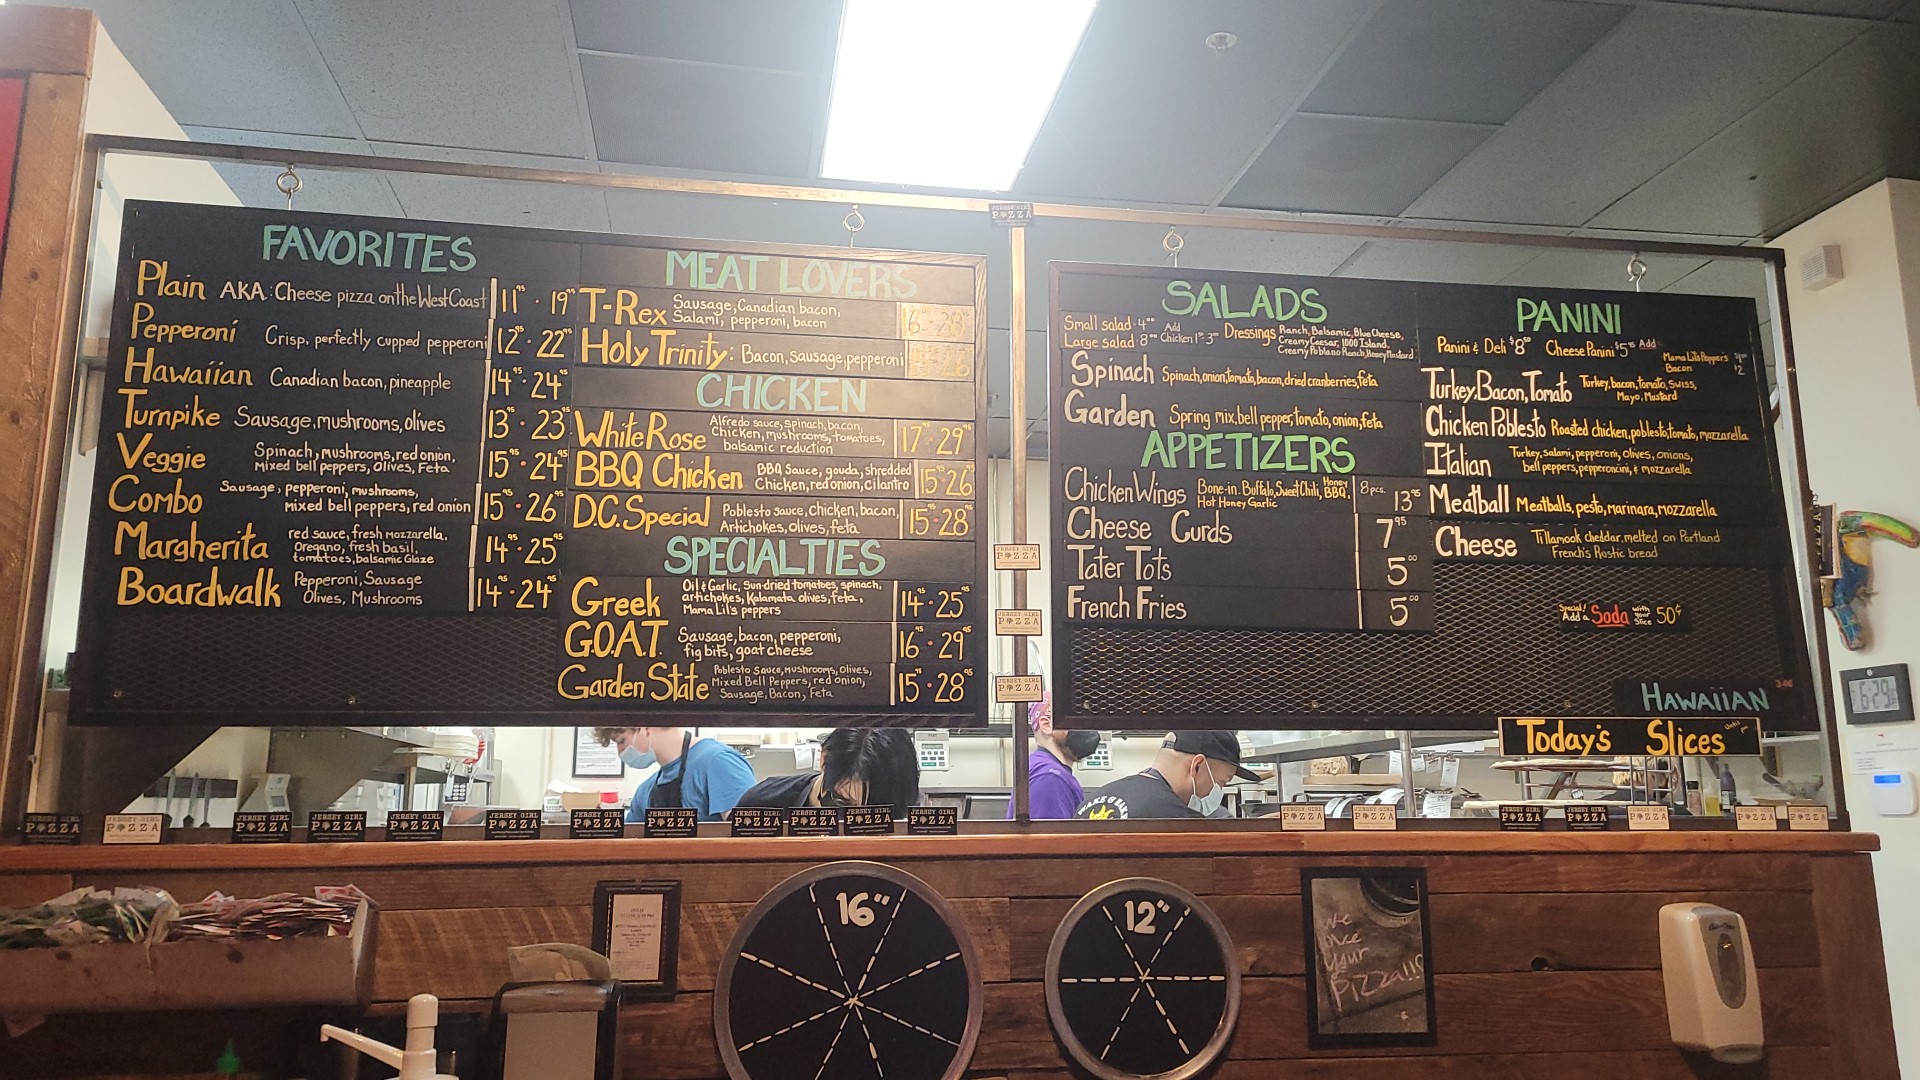 FAVORITES
Plain AKA: Cheese pizza on the West Coast 11⁹⁵ · 19⁹⁵
Pepperoni Crisp, perfectly cupped pepperoni 12⁹⁵ · 22⁹⁵
Hawaiian Canadian bacon, pineapple 14⁹⁵ · 24⁹⁵
Turnpike Sausage, mushrooms, olives 13⁹⁵ · 23⁹⁵
Veggie Spinach, mushrooms, red onion,
Mixed bell peppers, Olives, Feta 15⁹⁵ · 24⁹⁵
Combo Sausage, pepperoni, mushrooms,
Mixed bell peppers, red onion 15⁹⁵ · 26⁹⁵
Margherita red sauce, fresh mozzarella,
Oregano, fresh basil,
tomatoes, balsamic Glaze 14⁹⁵ · 25⁹⁵
Boardwalk Pepperoni, Sausage
Olives, Mushrooms 14⁹⁵ · 24⁹⁵
MEAT LOVERS
T-Rex Sausage, Canadian bacon,
Salami, pepperoni, bacon
Holy Trinity: Bacon, sausage, pepperoni
CHICKEN
White Rose Alfredo sauce, spinach, bacon,
Chicken, mushrooms, tomatoes,
balsamic reduction 17⁹⁵ · 29⁹⁵
BBQ Chicken BBQ Sauce, gouda, shredded
Chicken, red onion, cilantro 15⁹⁵ · 26⁹⁵
D.C. Special Poblesto sauce, chicken, bacon,
Artichokes, olives, feta 15⁹⁵ · 28⁹⁵
SPECIALTIES
Greek Oil & Garlic, Sun-dried tomatoes, spinach,
artichokes, Kalamata olives, feta,
Mama Lil's peppers 14⁹⁵ · 25⁹⁵
G.O.A.T. Sausage, bacon, pepperoni,
fig bits, goat cheese 16⁹⁵ · 29⁹⁵
Garden State Poblesto Sauce, Mushrooms, Olives,
Mixed Bell Peppers, red onion,
Sausage, Bacon, Feta 15⁹⁵ · 28⁹⁵
SALADS
Small salad · 4⁰⁰ Add
Large salad · 8⁰⁰ Chicken Dressings Ranch, Balsamic, Blue Cheese,
Creamy Caesar, 1000 Island,
Creamy Poblano Ranch, Honey Mustard
Spinach Spinach, onion, tomato, bacon, dried cranberries, feta
Garden Spring mix, bell pepper, tomato, onion, feta
APPETIZERS
Chicken Wings Bone-in. Buffalo, Sweet Chili, Honey BBQ,
Hot Honey Garlic 8 pcs. 13⁹⁵
Cheese Curds 7⁹⁵
Tater Tots 5⁰⁰
French Fries 5⁰⁰
PANINI
Panini & Deli $8⁵⁰ Cheese Panini $5 Add
Mama Lil's Peppers
Bacon $2
Turkey, Bacon, Tomato Turkey, bacon, tomato, Swiss,
Mayo, Mustard
Chicken Poblesto Roasted chicken, poblesto, tomato, mozzarella
Italian Turkey, salami, pepperoni, olives, onions,
bell peppers, pepperoncini, & mozzarella
Meatball Meatballs, pesto, marinara, mozzarella
Cheese Tillamook cheddar, melted on Portland
French's Rustic bread
Special! Add a Soda with your Slice 50¢
HAWAIIAN
Today's Slices
JERSEY GIRL
PIZZA
16"
12"
We
love
your
Pizza!!!
6:29